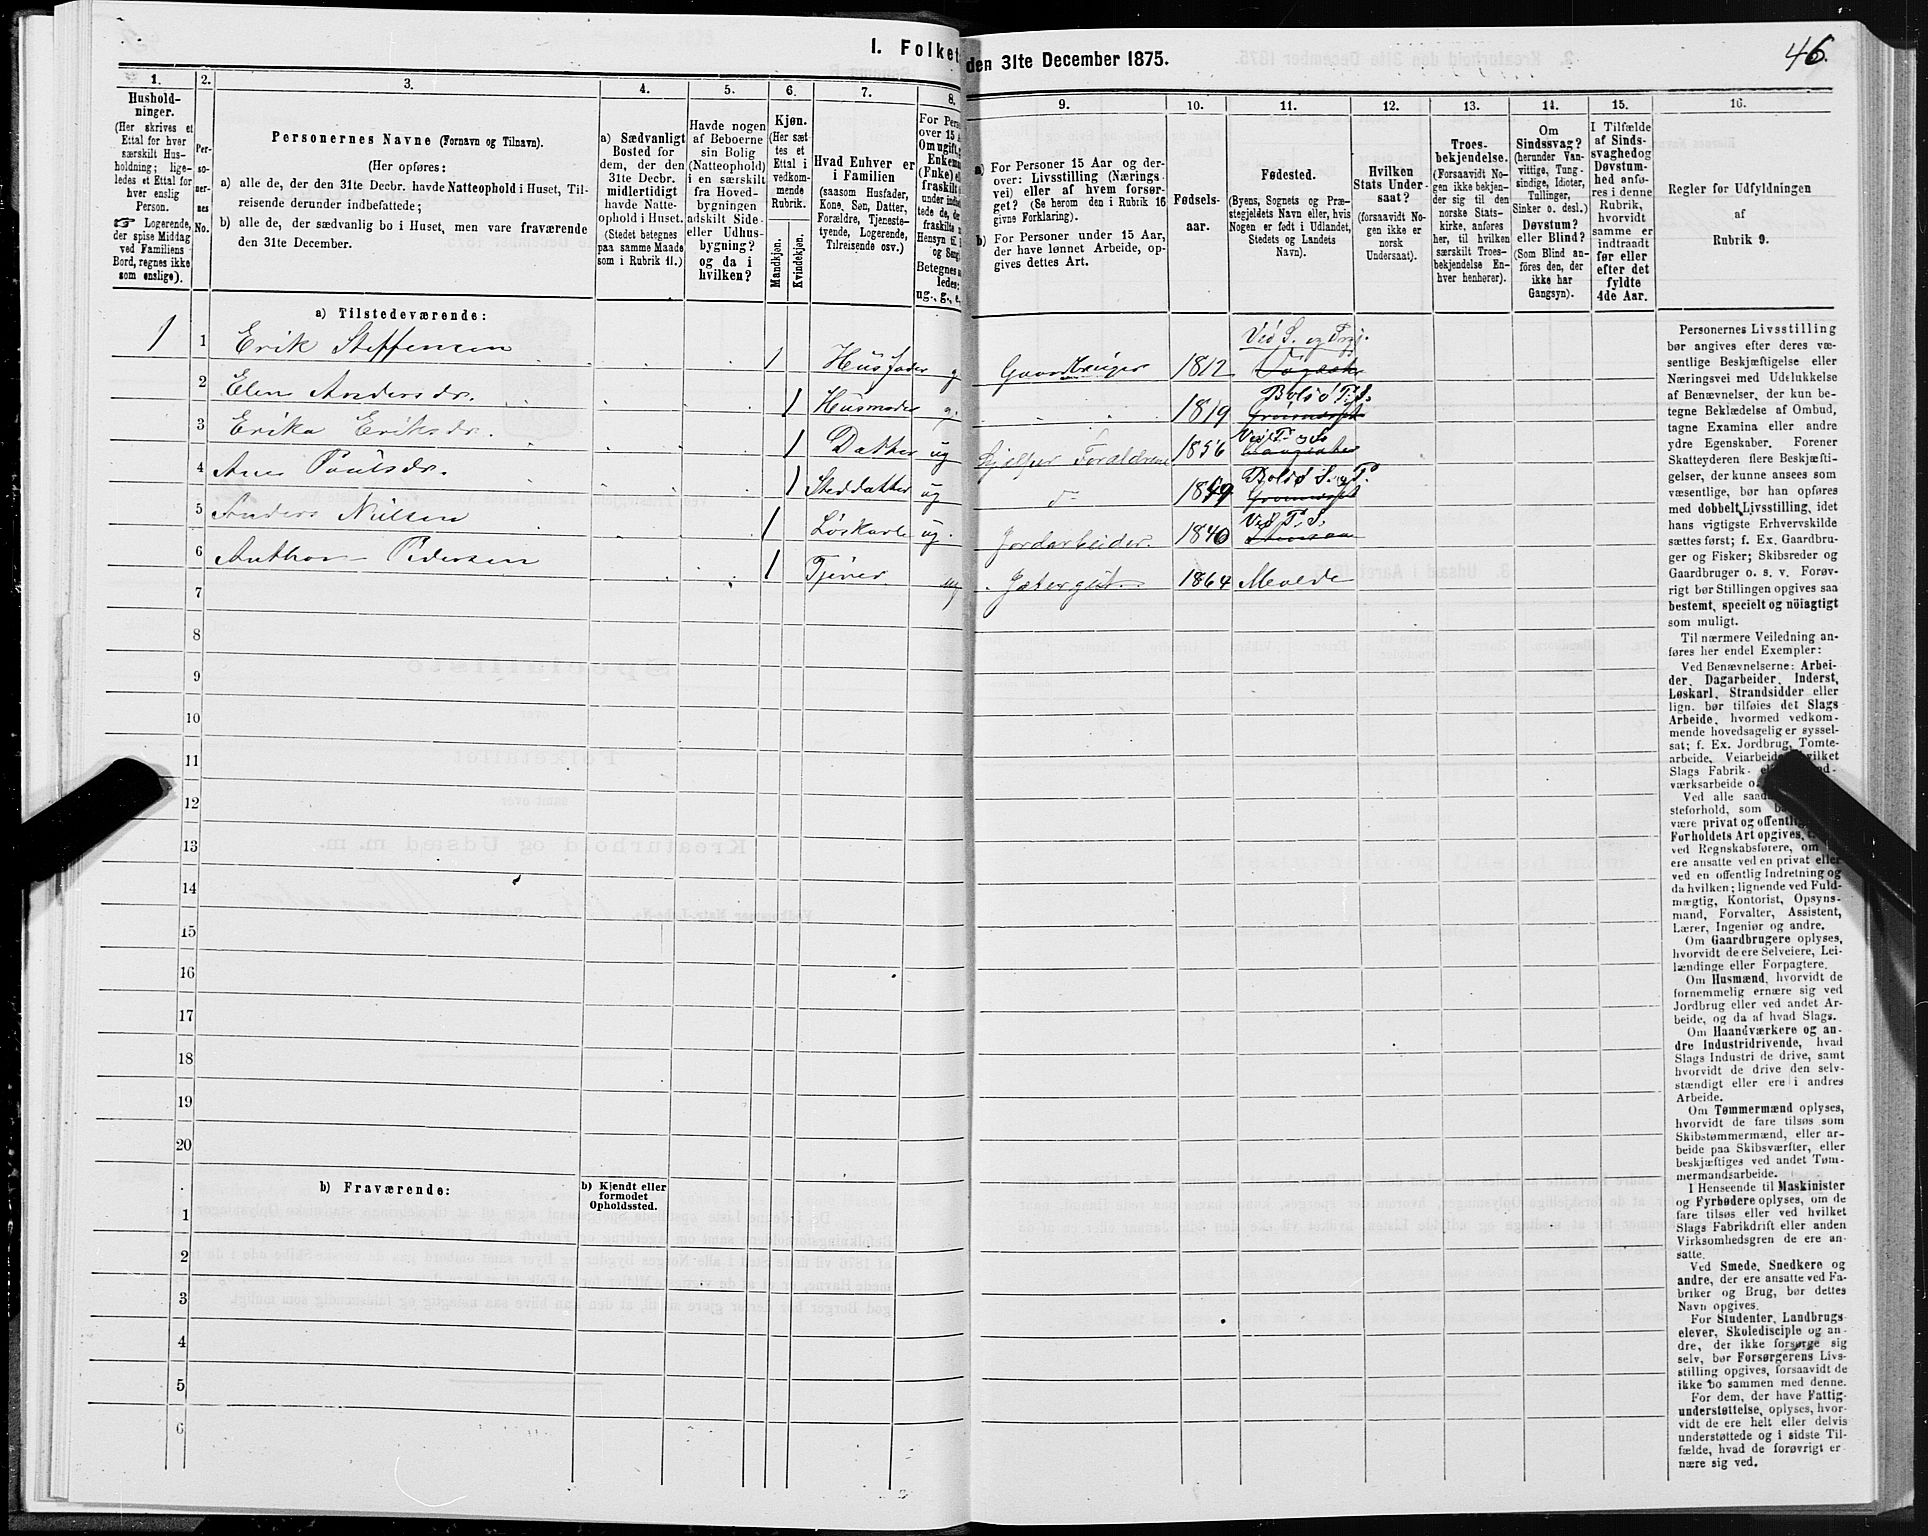 I. Folket den 31te December 1875.
46.
1. 2. 3. 4. 5. 6. 7. 8. 9. 10. 11. 12. 13. 14. 15. 16.
Hushold-
ninger.
(Her skrives et
Ettal for hver
særskilt Hus-
holdning; lige-
ledes et Ettal for
hver enslig
Person.
☞ Logerende,
der spise Middag
ved Familiens
Bord, regnes ikke
som enslige).
Per-
so-
ner-
nes
No.
Personernes Navne (Fornavn og Tilnavn).
(Her opføres:
a) alle de, der den 31te Decbr. havde Natteophold i Huset, Til-
reisende derunder indbefattede;
b) alle de, der sædvanlig bo i Huset, men vare fraværende
den 31te December.
a) Sædvanligt
Bosted for
dem, der den
31te Decbr.
midlertidigt
havde Natte-
ophold i Huset.
(Stedet betegnes
paa samme Maade
som i Rubrik 11.)
Havde nogen
af Beboerne
sin Bolig
(Natteophold)
i en særskilt
fra Hoved-
bygningen
adskilt Side-
eller Udhus-
bygning?
og da i
hvilken?
Kjøn.
(Her sæt
tes et
Ettal i
vedkom-
mende
Rubrik.
Mandkjøn.
Kvindekjøn.
Hvad Enhver er
i Familien
(saasom Husfader,
Kone, Søn, Datter,
Forældre, Tjeneste-
tyende, Logerende,
Tilreisende osv.)
For Pers
over 15 A
Om ugift,
Enkema
(Fnke) el
fraskilt
under indbe
tede de, de
fraskilte
Hensyn ti
og Seng
Betegnes
ledes:
ug., g., e.
a) For Personer 15 Aar og der-
over: Livsstilling (Nærings-
vei) eller af hvem forsør-
get? (Se herom den i Rubrik 16
givne Forklaring).
b) For Personer under 15 Aar,
der have lønnet Arbeide, op-
gives dettes Art.
Fødsels-
aar.
Fødested.
(Byens, Sognets og Præ-
stegjeldets Navn eller, hvis
Nogen er født i Udlandet,
Stedets og Landets
Navn).
Hvilken
Stats Under-
saat?
(forsaavidt No-
gen ikke er
norsk
Undersaat).
Troes-
bekjendelse.
(Forsaavidt No-
gen ikke bekjen-
der sig til den
norske Stats-
kirke, anføres
her, til hvilken
særskilt Troes-
bekjendelse En-
hver henhører).
Om
Sindssvag?
(herunder Van-
vittige, Tung-
sindige, Idioter,
Tullinger,
Sinker o. desl.)
Døvstum?
eller Blind?
(Som Blind an-
føres den, der
ikke har
Gangsyn).
I Tilfælde
af Sinds-
svaghed og
Døvstum-
hed anfø-
res i denne
Rubrik,
hvorvidt
samme er
indtraadt
før eller
efter det
fyldte
4de Aar.
Regler for Udfyldningen
af
Rubrik 9.
a) Tilstedeværende:
1 1 Erik Steffensen 1 Husfader g Gaardbruger 1812 Veø S. og Præstgj.
2 Elen Andersdr. 1 Husmoder g. 1819 Bolsø P. S.
3 Erika Eriksdr. 1 Datter ug Hjelper Forældrene 1856 Veø P. o S.
4 Ane Poulsdr. 1 Steddatter ug d 1849 Bolsø S. og P.
5 Anders Nielsen 1 Løskarl ug. Jordarbeider. 1840 Veø P. S.
6 Anthon Pedersen 1 Tjener ug Jætergut 1864 Molde
7
8
9
10
11
12
13
14
15
16
17
18
19
20
b) Fraværende:
b) Kjendt eller
formodet
Opholdssted.
1
2
3
4
5
6
Personernes Livsstilling
bør angives efter deres væ-
sentlige Beskjæftigelse eller
Næringsvei med Udelukkelse
af Benævnelser, der kun be-
tegne Beklædelse af Ombud,
tagne Examina eller andre
ydre Egenskaber. Forener
Skatteyderen flere Beskjæfti-
gelser, der kunne ansees som
væsentlige, bør han opføres
med dobbelt Livsstilling, idet
hans vigtigste Erhvervskilde
sættes først; f. Ex. Gaardbru-
ger og Fisker; Skibsreder og
Gaardbruger o. s. v. Forøv-
rigt bør Stillingen opgives saa
bestemt, specielt og nöiagtigt
som muligt.
Til nærmere Veiledning an-
føres her endel Exempler:
Ved Benævnelserne: Arbei-
der, Dagarbeider, Inderst,
Løskarl, Strandsidder eller
lign. bør tilføies det Slags
Arbeide, hvormed vedkom-
mende hovedsagelig er syssel-
sat; f. Ex. Jordbrug, Tomte-
arbeide, Veiarbeide, hvilket
Slags Fabrik-
værksarbeide o.
Ved alle saad
steforhold, som
være privat og offentlig
Forholdets Art opgives,
ved Regnskabsførere, om
ere ansatte ved en privat eller
ved en offentlig Indretning og
da hvilken; lignende ved Fuld-
mægtig, Kontorist, Opsyns-
mand, Forvalter, Assistent,
Lærer, Ingeniør og andre.
Om Gaardbrugere oplyses,
hvorvidt de ere Selveiere, Lei-
lændinge eller Forpagtere.
Om Husmænd, hvorvidt de
fornemmelig ernære sig ved
Jordbrug eller ved andet Ar-
beide, og da af hvad Slags.
Om Haandværkere og an-
dre Industridrivende, hvad
Slags Industri de drive, samt
hvorvidt de drive den selv-
stændigt eller ere i andres
Arbeide.
Om Tømmermænd oplyses,
hvorvidt de fare tilsøs som
Skibstømmermænd, eller ar-
beide paa Skibsværfter, eller
beskjæftiges ved andet Tøm-
mermandsarbeide.
I Henseende til Maskinister
og Fyrbødere oplyses, om de
fare tilsøs eller ved hvilket
Slags Fabrikdrift eller anden
Virksomhedsgren de ere an-
satte.
Ved Smede, Snedkere og
andre, der ere ansatte ved Fa-
briker og Brug, bør dettes
Navn opgives.
For Studenter, Landbrugs-
elever, Skoledisciple og an-
dre, der ikke forsørge sig
selv, bør Forsørgerens Livs-
stilling opgives, forsaavidt de
ikke bo sammen med denne.
For dem, der have Fattig-
understøttelse, oplyses, hvor-
vidt de ere helt eller delvis
understøttede og i sidste Til-
fælde, hvad de forøvrigt er-
nære sig ved.